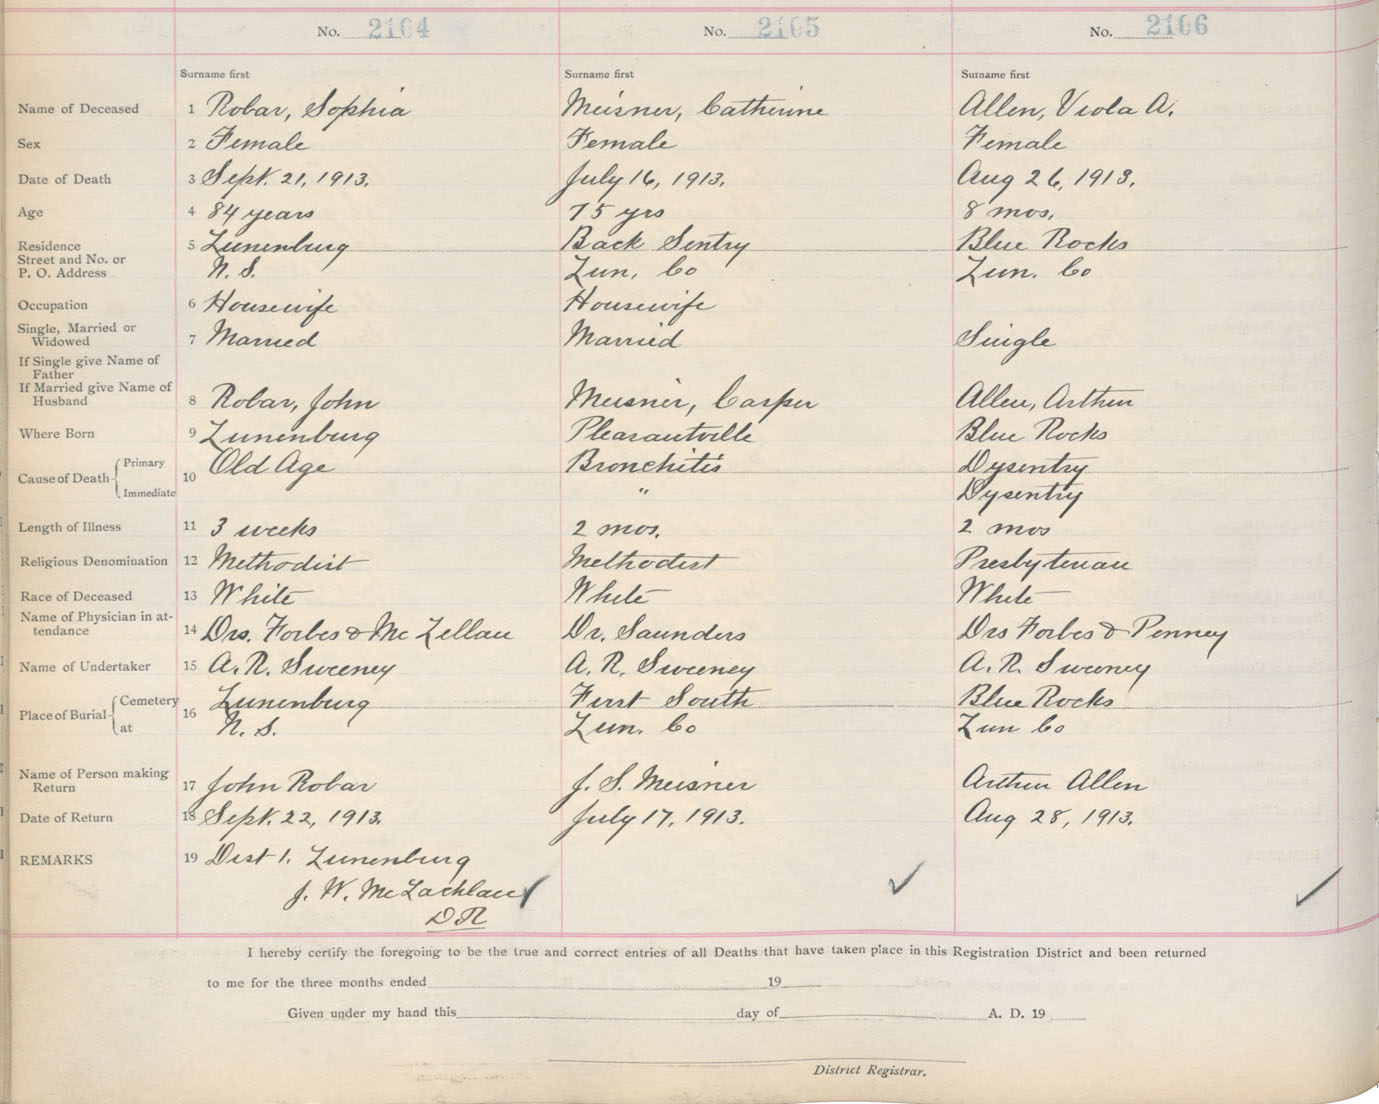 No. 2104 No. 2105 No. 2106
Surname first Surname first Surname first
Name of Deceased 1 Robar, Sophia Meisner, Catherine Allen, Viola A.
Sex 2 Female Female Female
Date of Death 3 Sept. 21, 1913. July 16, 1913. Aug 26, 1913.
Age 4 84 years 75 yrs 8 mos.
Residence 5 Lunenburg Back Sentry Blue Rocks
Street and No. or
P. O. Address N. S. Lun. Co Lun. Co
Occupation 6 Housewife Housewife
Single, Married or
Widowed 7 Married Married Single
If Single give Name of
Father
If Married give Name of
Husband 8 Robar, John Meisner, Casper Allen, Arthur
Where Born 9 Lunenburg Pleasantville Blue Rocks
Cause of Death Primary 10 Old Age Bronchitis Dysentry
Immediate " Dysentry
Length of Illness 11 3 weeks 2 mos. 2 mos
Religious Denomination 12 Methodist Methodist Presbyterian
Race of Deceased 13 White White White
Name of Physician in at-
tendance 14 Drs. Forbes & Mc Lellan Dr. Saunders Drs Forbes & Penney
Name of Undertaker 15 A. R. Sweeney A. R. Sweeney A. R. Sweeney
Place of Burial Cemetery 16 Lunenburg First South Blue Rocks
at N. S. Lun. Co Lun Co
Name of Person making
Return 17 John Robar J. S. Meisner Arthur Allen
Date of Return 18 Sept. 22, 1913. July 17, 1913. Aug 28, 1913.
REMARKS 19 Dist 1. Lunenburg
J. W. Mc Lachlan
D.R
I hereby certify the foregoing to be the true and correct entries of all Deaths that have taken place in this Registration District and been returned
to me for the three months ended 19
Given under my hand this day of A. D. 19
District Registrar.